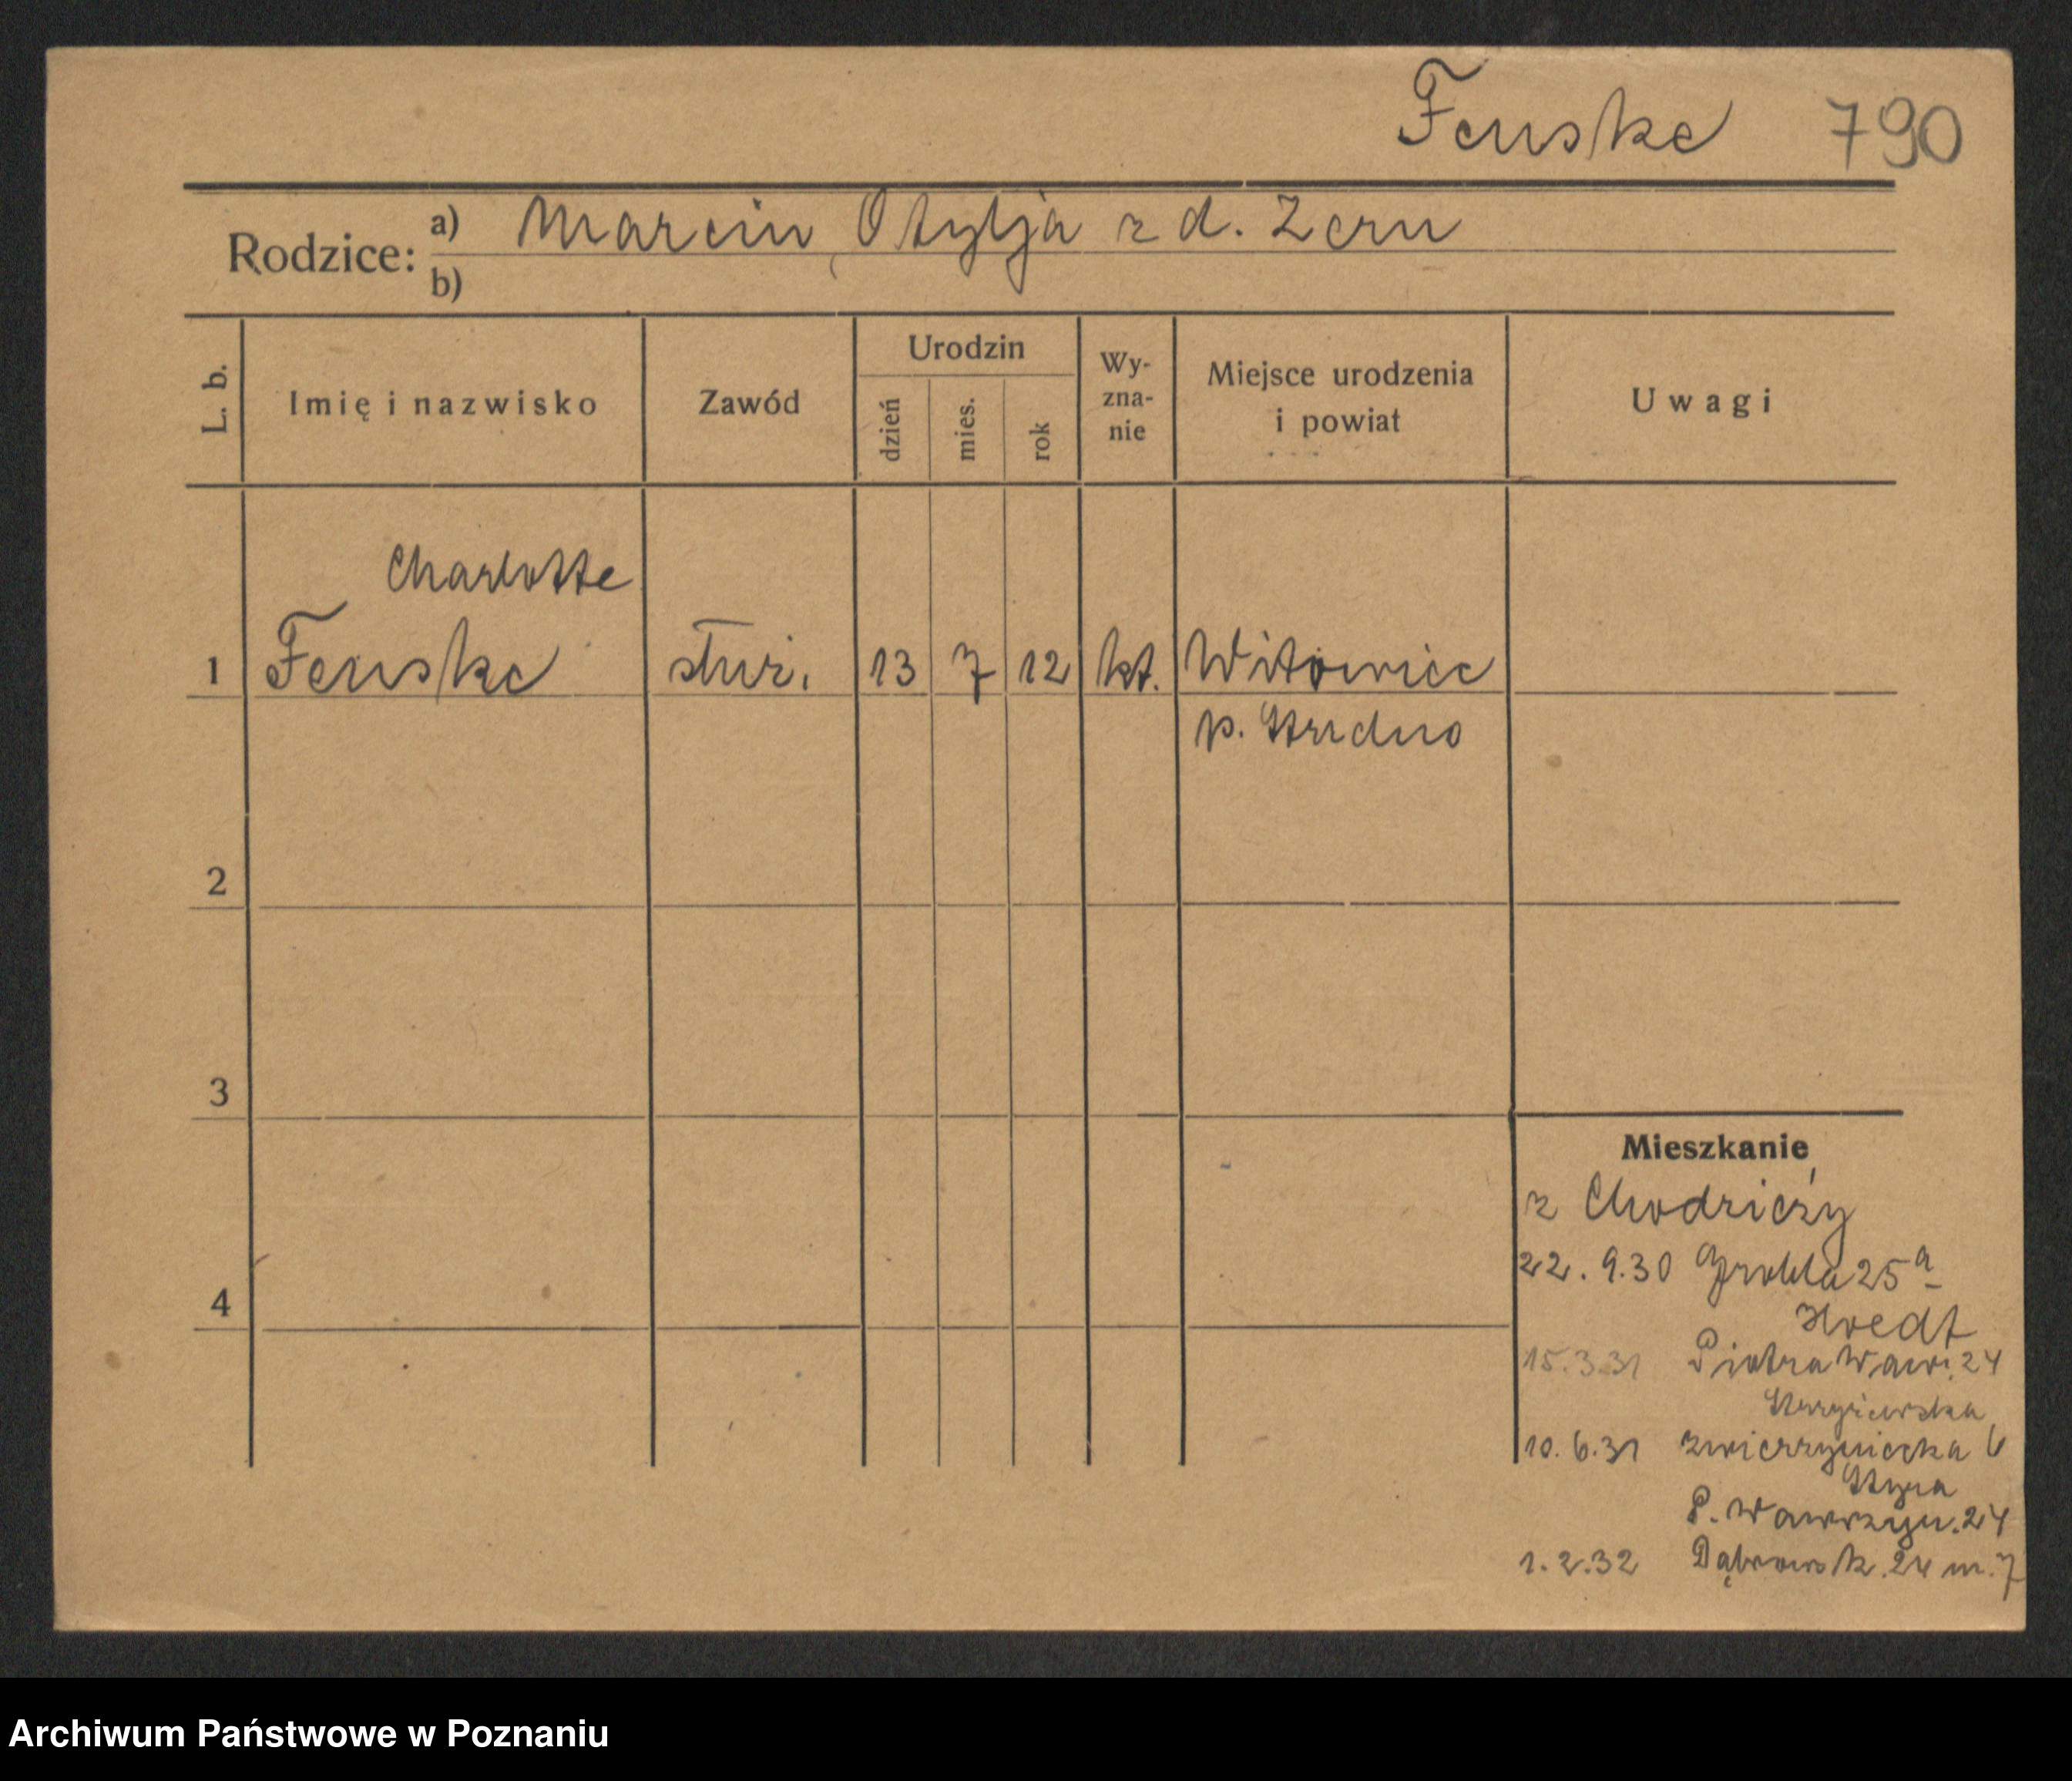 Fenske 790
Rodzice: a) Marcin, Otylja z d. Zern
b)
L. b.
Imię i nazwisko
Zawód
Urodzin
dzień
mies.
rok
Wy-
zna-
nie
Miejsce urodzenia
i powiat
Uwagi
Charlotte
1 Fenske służ. 13 7 12 kt. Witowiec
p.
2
3
4
Mieszkanie
z Chodzieży
22. 9.30 Grobla 25a
15.3.31 Piotra Waw. 24
10.6.31 Zwierzyniecka 6
P. Wawrzyn. 24
1.2.32 Dąbrowsk. 24 m. 7
Archiwum Państwowe w Poznaniu